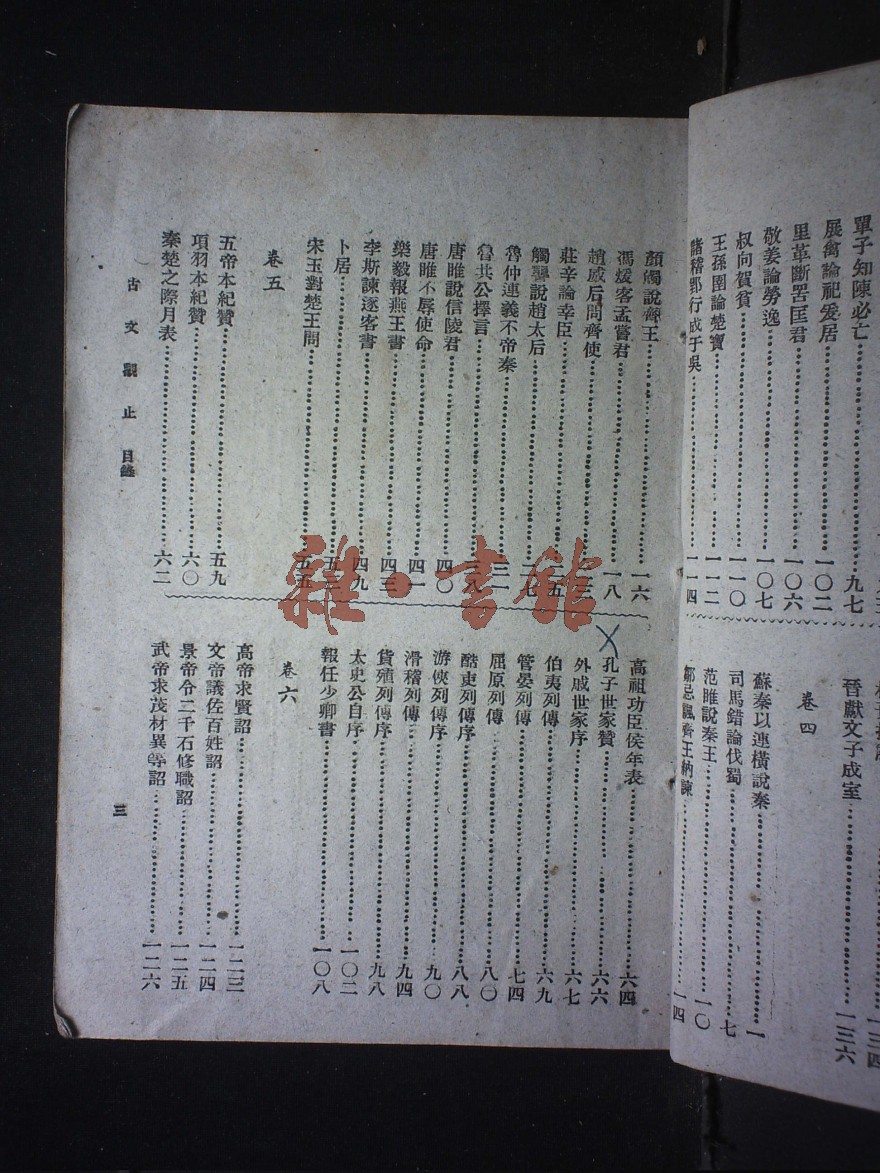 單子知陳必亡 九七
展禽論祀爰居 一〇二
里革斷罟匡君 一〇六
敬姜論勞逸 一〇七
叔向賀貧 一一〇
王孫圉論楚寶 一一二
諸稽郢行成于吳 一一四
晉獻文子成室 一三六
卷四
蘇秦以連橫說秦 一
司馬錯論伐蜀 七
范雎說秦王 一〇
鄒忌諷齊王納諫 一四
顏斶說齊王 一六
馮煖客孟嘗君 一八
趙威后問齊使
莊辛論幸臣
觸讋說趙太后
魯仲連義不帝秦
魯共公擇言
唐雎說信陵君 四〇
唐雎不辱使命 四一
樂毅報燕王書 四三
李斯諫逐客書 四九
卜居
宋玉對楚王問 五五
卷五
五帝本紀贊 五九
項羽本紀贊 六〇
秦楚之際月表 六二
高祖功臣侯年表 六四
孔子世家贊 六六
外戚世家序 六七
伯夷列傳 六九
管晏列傳 七四
屈原列傳 八〇
酷吏列傳序 八八
游俠列傳序 九〇
滑稽列傳 九四
貨殖列傳序 九八
太史公自序 一〇二
報任少卿書 一〇八
卷六
高帝求賢詔 一二三
文帝議佐百姓詔 一二四
景帝令二千石修職詔 一二五
武帝求茂材異等詔 一二六
古文觀止 目錄
三
雜·書館